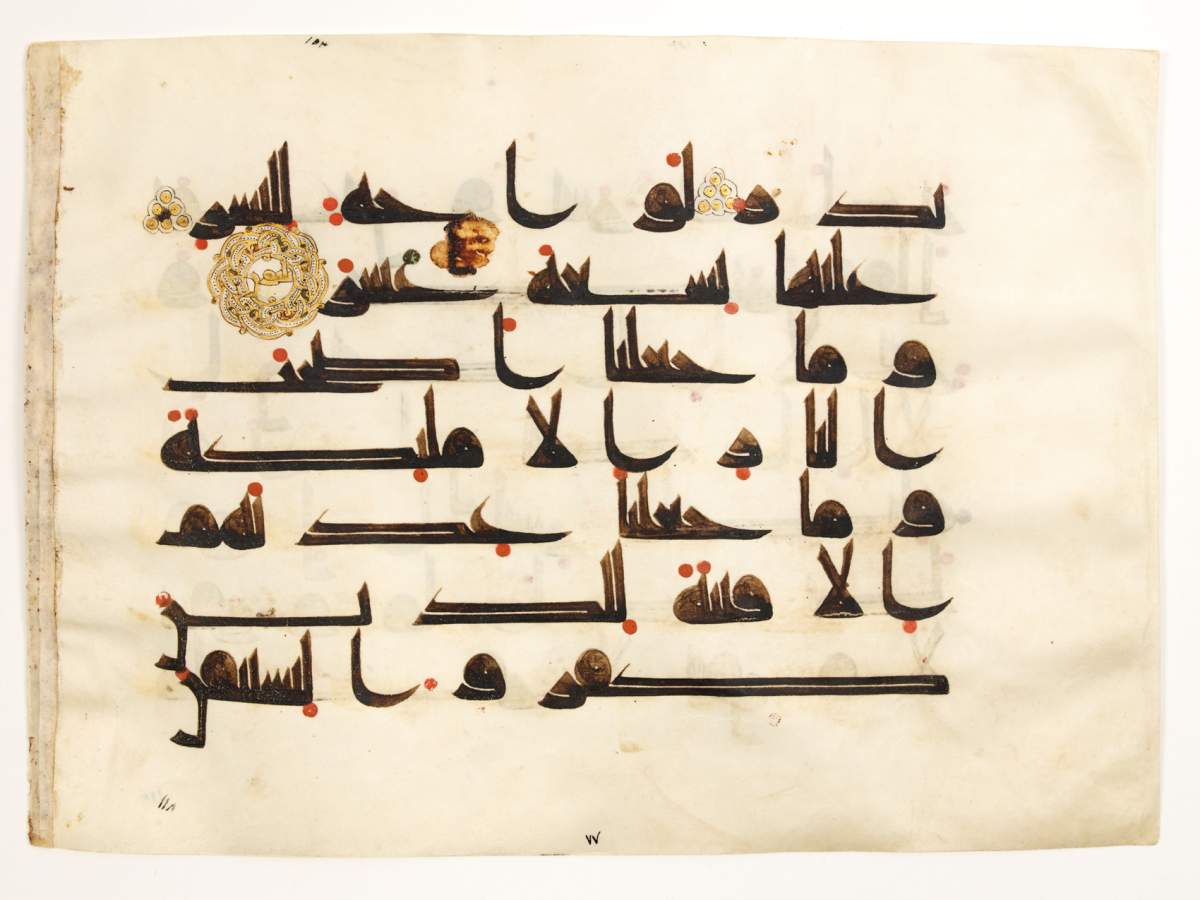 تذر لواحة للبشر
عليها تسعة عشر
وما جعلنا اصحب
النار الا ملئكة
وما جعلنا عدتهم
الا فتنة للذين
كفروا ليستيقن
٧٧